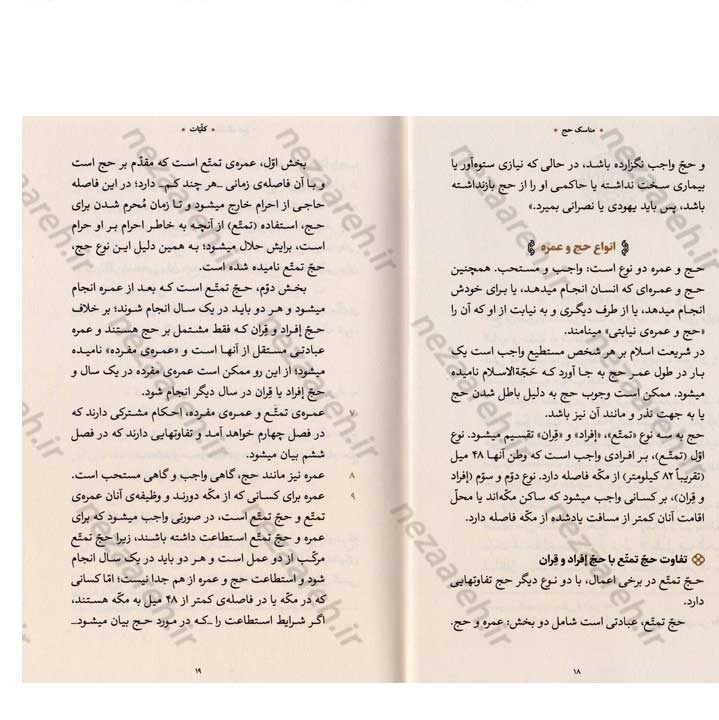 مناسک حج
و حجّ واجب نگزارده باشد، در حالی که نیازی ستوه‌آور یا
بیماری سخت نداشته یا حاکمی او را از حج بازنداشته
باشد، پس باید یهودی یا نصرانی بمیرد.»
انواع حج و عمره
حـج و عمره دو نوع است: واجب و مستحب. همچنین
حج و عمره‌ای که انسان انجام میدهد، یا برای خودش
انجام میدهد، یا از طرف دیگری و به نیابت از او که آن را
«حج و عمره‌ی نیابتی» مینامند.
در شریعت اسلام بر هر شخص مستطیع واجب است یک
بار در طول عمر حج به جا آورد که حَجّةالاسلام نامیده
میشود. ممکن است وجوب حج به دلیل باطل شدن حج
یا به جهت نذر و مانند آن نیز باشد.
حج به سه نوع «تمتّع»، «إفراد» و «قِران» تقسیم میشود. نوع
اوّل (تمتّع)، بر افرادی واجب است که وطن آنها ۴۸ میل
(تقریباً ۸۲ کیلومتر) از مکّه فاصله دارد. نوع دوّم و سوّم (إفراد
و قِران)، بر کسانی واجب میشود که ساکن مکّه‌اند یا محلّ
اقامت آنان کمتر از مسافت یادشده از مکّه فاصله دارد.
تفاوت حجّ تمتّع با حجّ إفراد و قِران
حـجّ تمتّع در برخی اعمال، با دو نـوع دیگر حج تفاوتهایی
دارد.
حجّ تمتّع، عبادتی است شامل دو بخش: عمره و حج.
۱۸
کلیّات
بخش اوّل، عمره‌ی تمتّع است که مقدّم بر حج است
و بـا آن فاصله‌ی زمانی ـ هر چند کم ـ دارد؛ در این فاصله
حاجی از احرام خارج میشود و تـا زمان مُحرم شدن برای
حـج، استفاده (تمتّع) از آنچـه به خاطر احرام بر او حرام
است، برایش حلال میشود؛ به همین دلیل این نوع حج،
حجّ تمتّع نامیده شده است.
بخش دوّم، حـجّ تمتّـع است کـه بعـد از عمره انجام
میشود و هـر دو باید در یک سال انجام شوند؛ بر خلاف
حـجّ إفراد و قِران که فقط مشتمل بر حج هستند و عمره
عبادتی مستقل از آنهـا است و «عمره‌ی مفرده» نامیده
میشود؛ از این رو ممکن است عمره‌ی مفرده در یک سال و
حجّ إفراد یا قِران در سال دیگر انجام شود.
۷ عمره‌ی تمتّع و عمره‌ی مفرده، احکام مشترکی دارند که
در فصل چهارم خواهد آمـد و تفاوتهایی دارند که در فصل
ششم بیان میشود.
۸ عمره نیز مانند حج، گاهی واجب و گاهی مستحب است.
۹ عمره برای کسانی که از مکّه دورنـد و وظیفه‌ی آنان عمره‌ی
تمتّع و حجّ تمتّع است، در صورتی واجب میشود که برای
عمره و حجّ تمتّع استطاعت داشته باشند، زیرا حجّ تمتّع
مرکّب از دو عمل است و هـر دو باید در یک سـال انجام
شود و استطاعت حج و عمره از هم جدا نیست؛ امّا کسانی
که در مکّه یا در فاصله‌ی کمتر از ۴۸ میل به مکّه هستند،
اگـر شرایط استطاعت را ـ کـه در مورد حـج بیان میشود ـ
۱۹
nezaareh.ir
nezaareh.ir
nezaareh.ir
nezaareh.ir
nezaareh.ir
nezaareh.ir